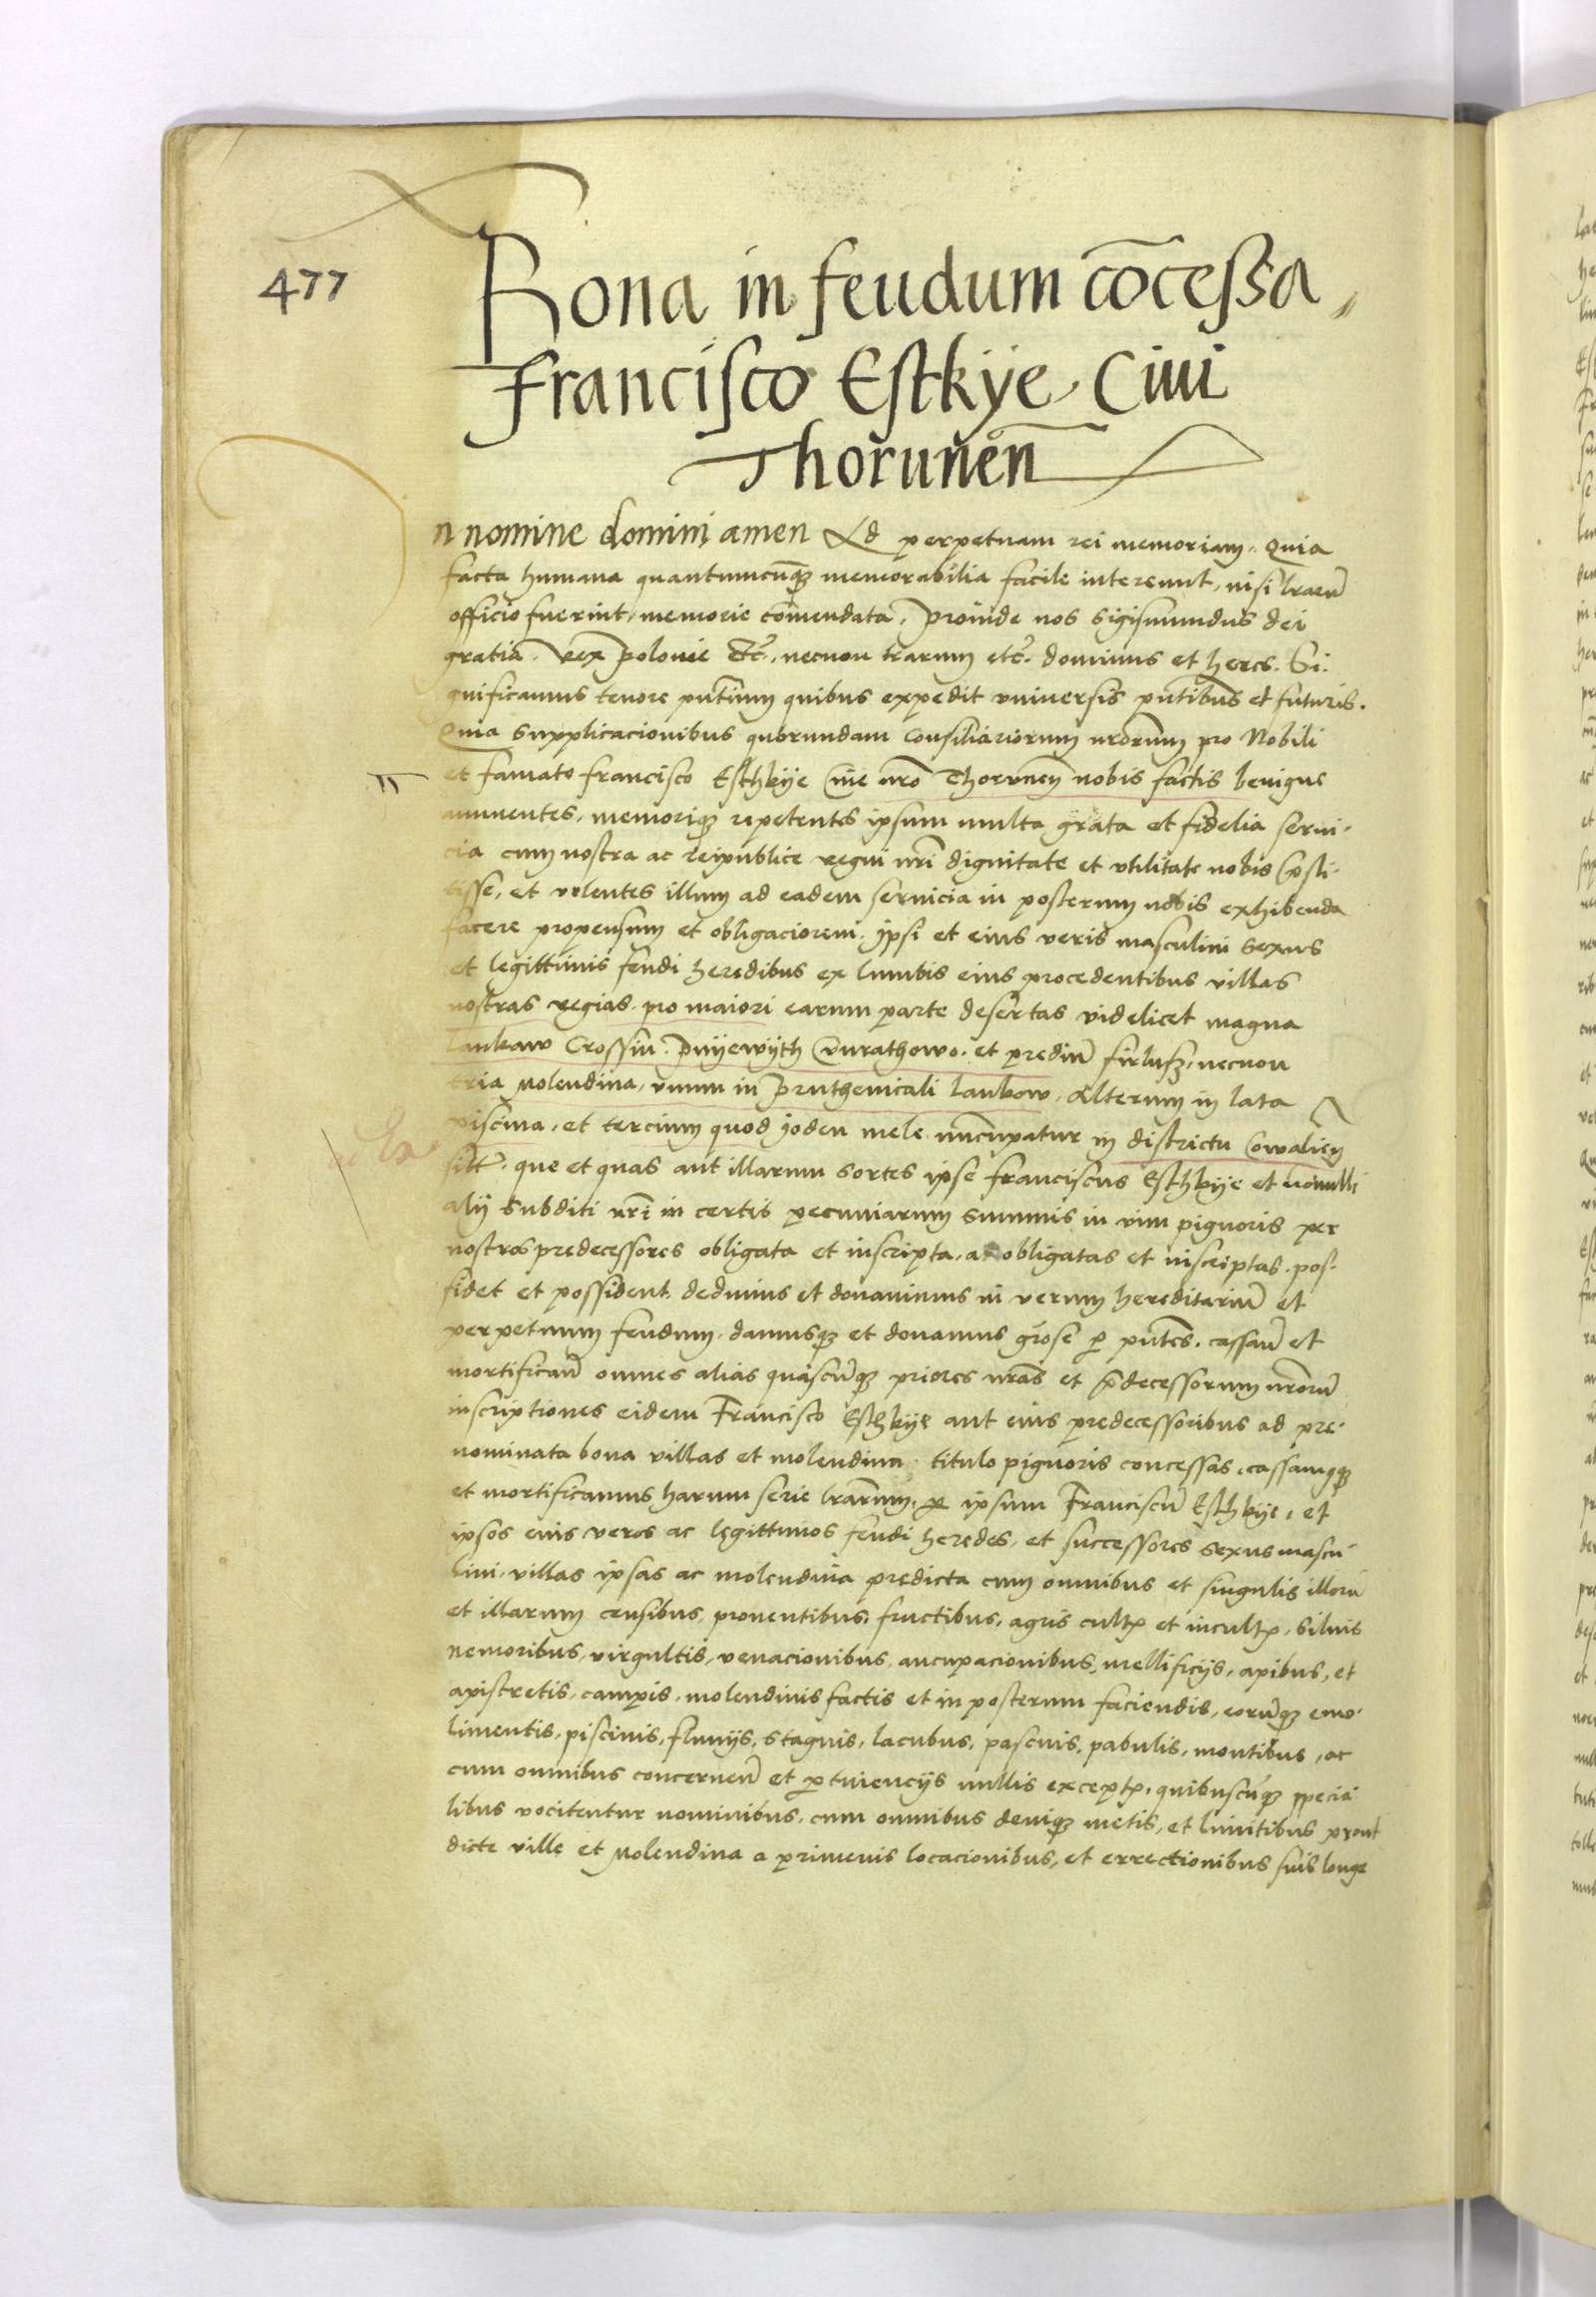 477
Bona in feudum cōcessa
Francisco Estkÿe Ciui
Thorunen̄
n nomine domini amen Ad perpetuam rei memoriam. Quia
facta humana quantumcunq̄ memorabilia facile intereunt, nisi lrarū
officio fuerint memorie com̄endata. Proinde nos Sigismundus dei
gratia Rex Polonie Etc̄. necnon trarum etc̄. dominus et heres. Si-
gnificamus tenore pn̄tium quibus expedit vniuersis pn̄tibus et futuris.
Quia supplicacionibus quorundam Consiliariorum nrōrum pro Nobili
et famato Francisco Esthkÿe Ciue nrō Thorunen̄ nobis factis benigne
annuentes, memoriaq̄ repetentes ipsum multa grata et fidelia serui-
cia cum nostra ac reipublice regni nrī dignitate et vtilitate nobis p̄sti-
tisse, et volentes illum ad eadem seruicia in posterum nobis exhibenda
facere propensum et obligaciorem. Ipsi et eius veris masculini sexus
et legittimis feudi heredibus ex lumbis eius procedentibus villas
nostras regias pro maiori earum parte desertas videlicet magna
Lankaw Crossin. Pnÿewÿth Gurathowo. et prediū firlusz, necnon
tria Molendina, vnum in Pruthenicali Lankow, Alterum in lata
piscina, et tercium quod Joden mele nuncupatur in districtu Cowalien̄
sitt̄. que et quas aut illarum sortes ipse Franciscus Esthkÿe et nōnulli
alÿ subditi nrī in certis pecuniarum summis in vim pignoris per
nostros predecessores obligata et inscripta, ac obligatas et inscriptas. pos-
sidet et possident, dedimus et donauimus in verum hereditariū et
perpetuum feudum, damusq̄ et donamus grōse p̄ pn̄tes. cassan̄ et
mortifican̄ omnes alias quascūq̄ priores nrās et p̄decessorum nrōrū
inscriptiones eidem Francisco Esthkÿe aut eius predecessoribus ad pre-
nominata bona villas et molendina titulo pignoris concessas, cassamqq̄
et mortificamus harum serie lrārum, p̄ ipsum Franciscū Esthkÿe, et
ipsos eius veros ac legittimos feudi heredes, et successores sexus mascu-
lini, villas ipsas ac molendina predicta cum omnibus et singulis illorū
et illarum censibus, prouentibus, fructibus, agris cult̄ et incult̄, siluis
nemoribus, virgultis, venacionibus, aucupacionibus, mellificÿs, apibus, et
apistretis, campis, molendinis factis et in posterum faciendis, eorūq̄ emo-
limentis, piscinis, fluuÿs, stagnis, lacubus, pascuis, pabulis, montibus, ac
cum omnibus concernen̄ et p̄tinencÿs nullis except̄, quibuscūq̄ specia-
libus vocitentur nominibus, cum omnibus deniq̄ metis, et limitibus prout
dicte ville et Molendina a primeuis locacionibus, et errectionibus suis longe